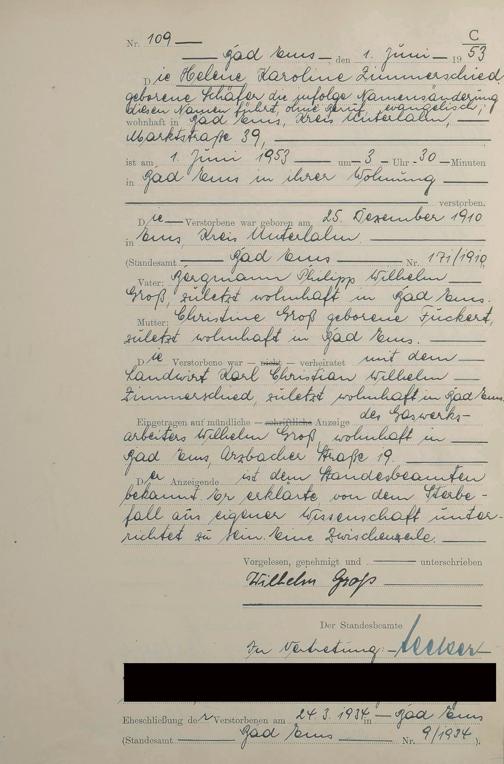 C
Nr. 109
Bad Ems, den 1. Juni 1953
Die Helene Karoline Zimmerschied
geborene Schäfer die infolge Namensänderung
diesen Namen führt, ohne Beruf, evangelisch,
wohnhaft in Bad Ems, Kreis Unterlahn,
Marktstraße 39,
ist am 1. Juni 1953 um 3 Uhr 30 Minuten
in Bad Ems in ihrer Wohnung
verstorben.
Die Verstorbene war geboren am 25. Dezember 1910
in Ems, Kreis Unterlahn.
(Standesamt Bad Ems Nr. 171/1910)
Vater: Bergmann Philipp Wilhelm
Groß, zuletzt wohnhaft in Bad Ems.
Mutter: Christine Groß geborene
zuletzt wohnhaft in Bad Ems.
Die Verstorbene war — nicht — verheiratet mit dem
Landwirt Karl Christian Wilhelm
Zimmerschied, zuletzt wohnhaft in Bad Ems
Eingetragen auf mündliche — schriftliche Anzeige des Gaswerks-
arbeiters Wilhelm Groß, wohnhaft in
Bad Ems, Arzbacher Straße 19.
Der Anzeigende ist dem Standesbeamten
bekannt. Er erklärte von dem Sterbe-
fall aus eigener Wissenschaft unter-
richtet zu sein. Eine Zwischenzeile.
Vorgelesen, genehmigt und unterschrieben
Wilhelm Groß
Der Standesbeamte
In Vertretung:
Eheschließung der Verstorbenen am 24.3.1934 in Bad Ems
(Standesamt Bad Ems Nr. 9/1934).